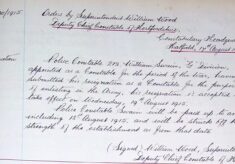 /1915
Orders by Superintendent William Wood
Deputy Chief Constable of Hertfordshire.
Constabulary Headquarters
Hatfield, 17th August
Police Constable 278 William Swain, "E" Division,
appointed as a Constable for the period of the War, having
submitted his resignation as a Constable for the purpose
of enlisting in the Army, his resignation is accepted to
take effect on Wednesday 18th August 1915.
Police Constable Swain will be paid up to and
including 18th August 1915, and will be struck off the
strength of the establishment as from that date.
(Signed) William Wood, Superintendent
Deputy Chief Constable of